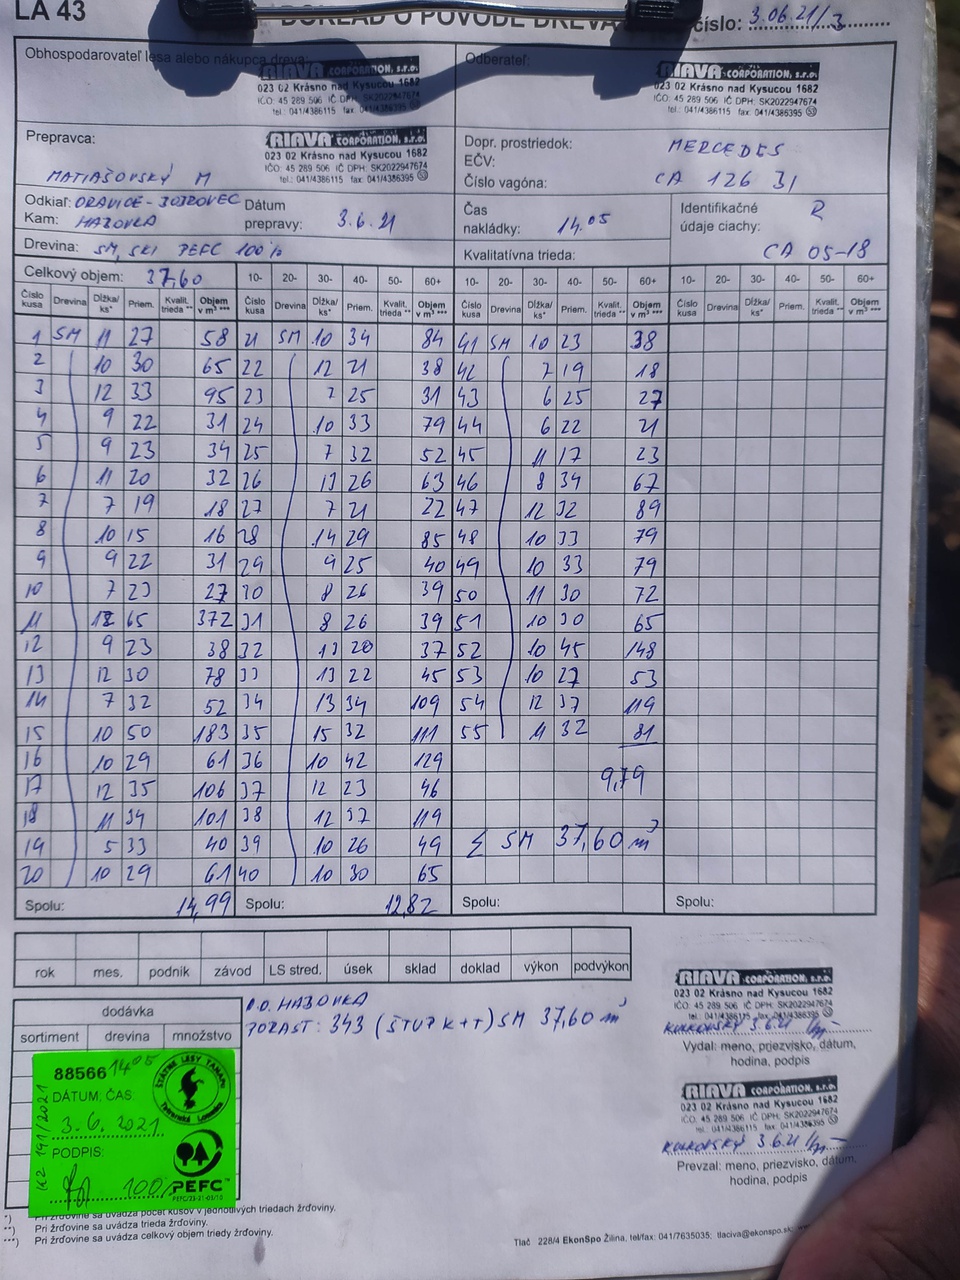 LA 43
DOKLAD O PÔVODE DREVA
číslo: 3.06.21/3
Obhospodarovateľ lesa alebo nákupca dreva
RIAVA CORPORATION, s.r.o.
023 02 Krásno nad Kysucou 1682
IČO: 45 289 506 IČ DPH: SK2022947674
tel.: 041/4386115 fax: 041/4386395
Odberateľ:
RIAVA CORPORATION, s.r.o.
023 02 Krásno nad Kysucou 1682
IČO: 45 289 506 IČ DPH: SK2022947674
tel.: 041/4386115 fax: 041/4386395
Prepravca:
RIAVA CORPORATION, s.r.o.
023 02 Krásno nad Kysucou 1682
IČO: 45 289 506 IČ DPH: SK2022947674
tel.: 041/4386115 fax: 041/4386395
MATIAŠOVSKÝ M
Dopr. prostriedok: MERCEDES
EČV:
Číslo vagóna: CA 126 31
Odkiaľ: ORAVICE -
Kam: HABOVKA
Dátum
prepravy: 3.6.21
Čas
nakládky: 14.05
Identifikačné R
údaje ciachy:
CA 05-18
Drevina: SM, SKI PEFC 100%
Kvalitatívna trieda:
Celkový objem: 37,60
10- 20- 30- 40- 50- 60+ 10- 20- 30- 40- 50- 60+ 10- 20- 30- 40- 50- 60+
Číslo kusa Drevina Dĺžka/ ks* Priem. Kvalit. trieda ** Objem v m³ *** Číslo kusa Drevina Dĺžka/ ks* Priem. Kvalit. trieda ** Objem v m³ *** Číslo kusa Drevina Dĺžka/ ks* Priem. Kvalit. trieda ** Objem v m³ *** Číslo kusa Drevina Dĺžka/ ks* Priem. Kvalit. trieda ** Objem v m³ ***
1 SM 11 27 58 21 SM 10 34 84 41 SM 10 23 38
2 10 30 65 22 12 21 38 42 7 19 18
3 12 33 95 23 7 25 31 43 6 25 27
4 9 22 31 24 10 33 79 44 6 22 21
5 9 23 34 25 7 32 52 45 11 17 23
6 11 20 32 26 13 26 63 46 8 34 67
7 7 19 18 27 7 21 22 47 12 32 89
8 10 15 16 28 14 29 85 48 10 33 79
9 9 22 31 29 9 25 40 49 10 33 79
10 7 23 27 30 8 26 39 50 11 30 72
11 12 65 372 31 8 26 39 51 10 30 65
12 9 23 38 32 13 20 37 52 10 45 148
13 12 30 78 33 13 22 45 53 10 27 53
14 7 32 52 34 13 34 109 54 12 37 119
15 10 50 183 35 15 32 111 55 11 32 81
16 10 29 61 36 10 42 129
17 12 35 106 37 12 23 46 9,79
18 11 34 101 38 12 37 119
19 5 33 40 39 10 26 49 Σ SM 37,60 m³
20 10 29 61 40 10 30 65
Spolu: 14,99 Spolu: 12,82 Spolu: Spolu:
rok mes. podnik závod LS stred. úsek sklad doklad výkon podvýkon
dodávka
sortiment drevina množstvo
O.O. HABOVKA
PORAST: 343 (ŠTUP K+T) SM 37,60 m³
RIAVA CORPORATION, s.r.o.
023 02 Krásno nad Kysucou 1682
IČO: 45 289 506 IČ DPH: SK2022947674
3.6.21
Vydal: meno, priezvisko, dátum,
hodina, podpis
RIAVA CORPORATION, s.r.o.
023 02 Krásno nad Kysucou 1682
IČO: 45 289 506 IČ DPH: SK2022947674
tel.: 041/4386115 fax: 041/4386395
3.6.21
Prevzal: meno, priezvisko, dátum,
hodina, podpis
88566 1405
ŠTÁTNE LESY TANAPu
Tatranská Lomnica
DÁTUM, ČAS
3.6.2021
PODPIS:
100%
PEFC
PEFC/23-21-03/10
K2 191/2021
*) Pri žrďovine sa uvádza počet kusov v jednotlivých triedach žrďoviny.
**) Pri žrďovine sa uvádza trieda žrďoviny.
***) Pri žrďovine sa uvádza celkový objem triedy žrďoviny.
Tlač 228/4 EkonSpo Žilina, tel/fax: 041/7635035; tlaciva@ekonspo.sk;